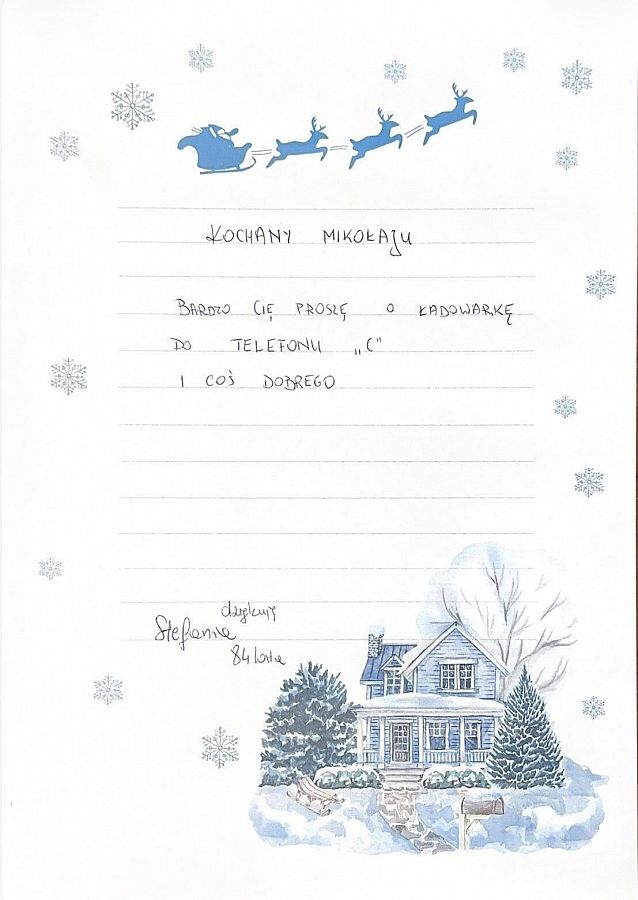 KOCHANY MIKOŁAJU
BARDZO CIĘ PROSZĘ O ŁADOWARKĘ
DO TELEFONU „C”
I COŚ DOBREGO
dziękuję
Stefania
84 lata